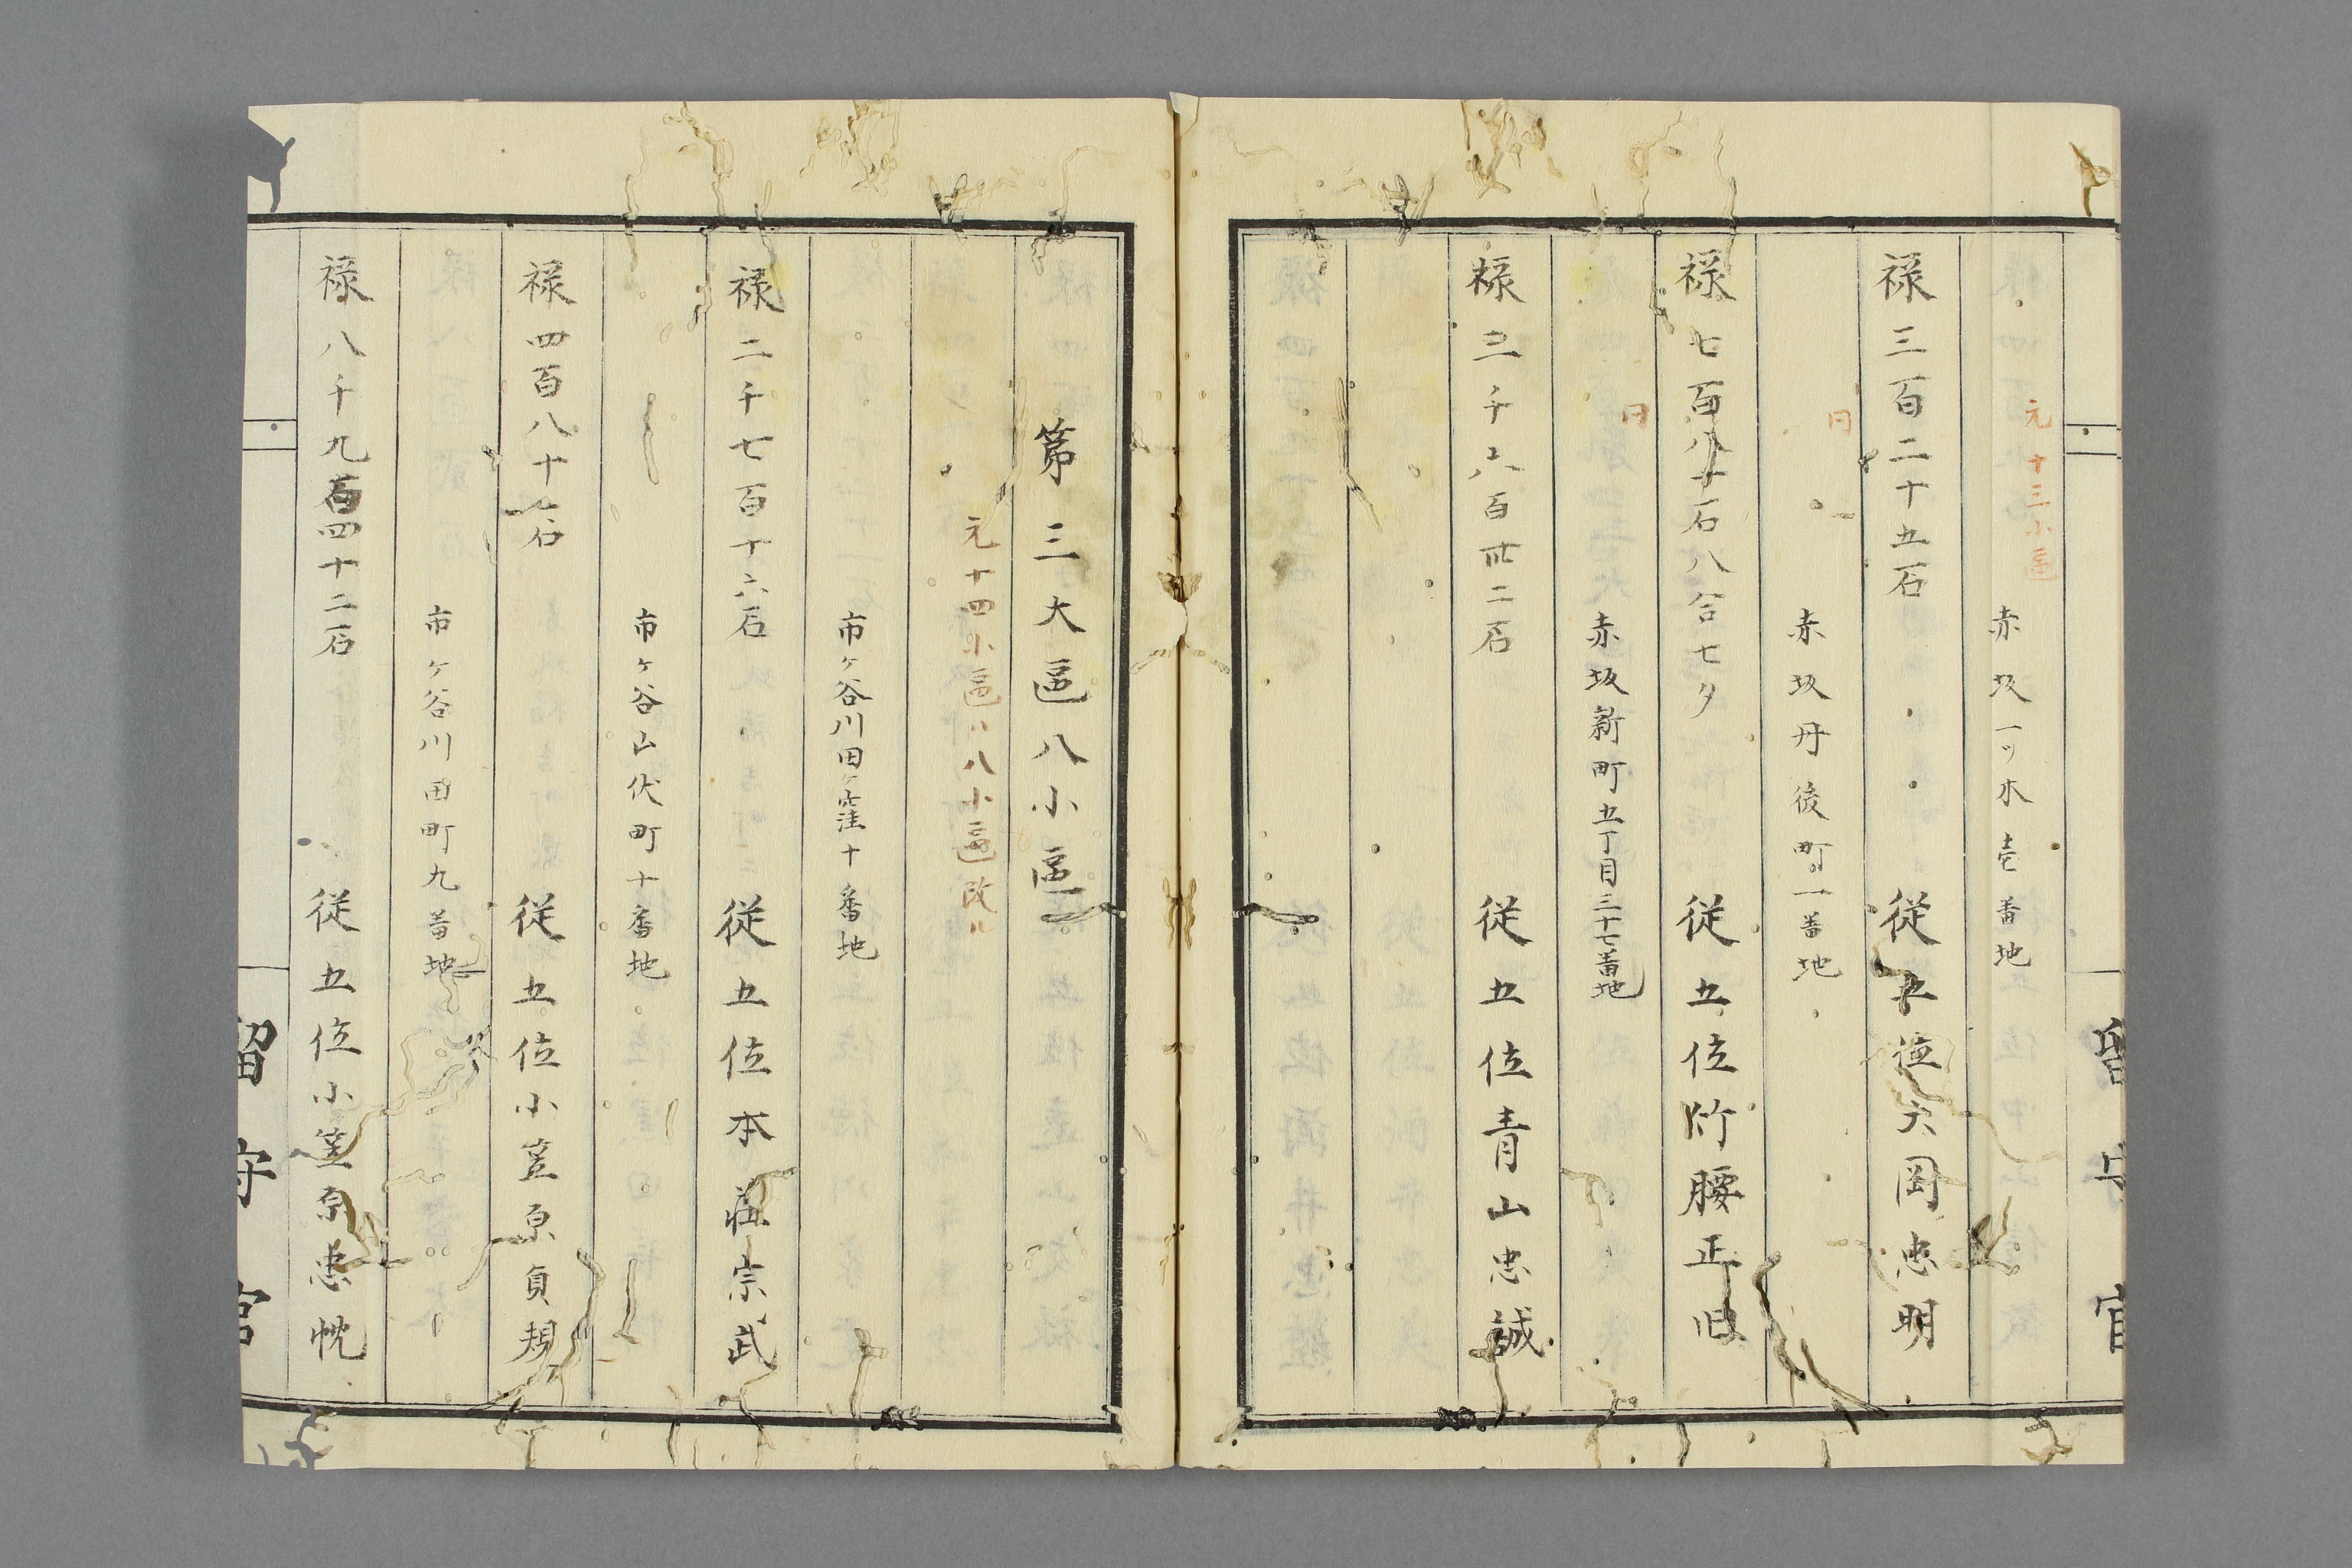 元十三小區
赤坂一ツ木壱番地
禄三百二十五石 従五位大岡忠明
同
赤坂丹後町一番地
禄七百八十石八合七夕 従五位竹腰正旧
同
赤坂新町五丁目三十七番地
禄三千六百丗二石 従五位青山忠誠
第三大區八小區
元十四小區ハ八小區改ル
市ヶ谷川田ヶ窪十番地
禄二千七百十六石 従五位本荘宗武
市ヶ谷山伏町十番地
禄四百八十七石 従五位小笠原貞規
市ヶ谷川田町九番地
禄八千九百四十二石 従五位小笠原忠忱
留守官